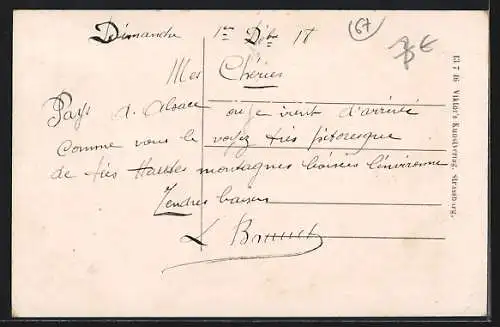 Dimanche 1er Débre 18
67
Mes Chéries
Pays d'Alsace ou je vient d'arrivée
Comme vous le voyez très pitoresque
de très Hautes montagnes boisées l'environne
Tendres baisers
13 7 16 Viktor's Kunstverlag, Strassburg.